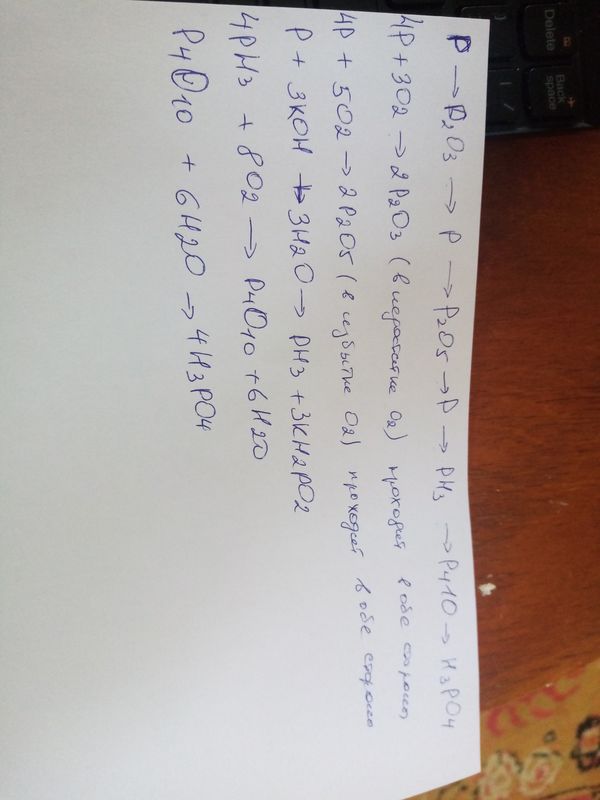 P → P2O3 → P → P2O5 → P → PH3 → P4 10 → H3PO4
4P + 3O2 → 2P2O3 (в недостатке O2) проходит в обе стороны
4P + 5O2 → 2P2O5 (в избытке O2) проходит в обе стороны
P + 3KOH → 3H2O → PH3 + 3KH2PO2
4PH3 + 8O2 → P4O10 + 6H2O
P4O10 + 6H2O → 4H3PO4
Delete
Back space